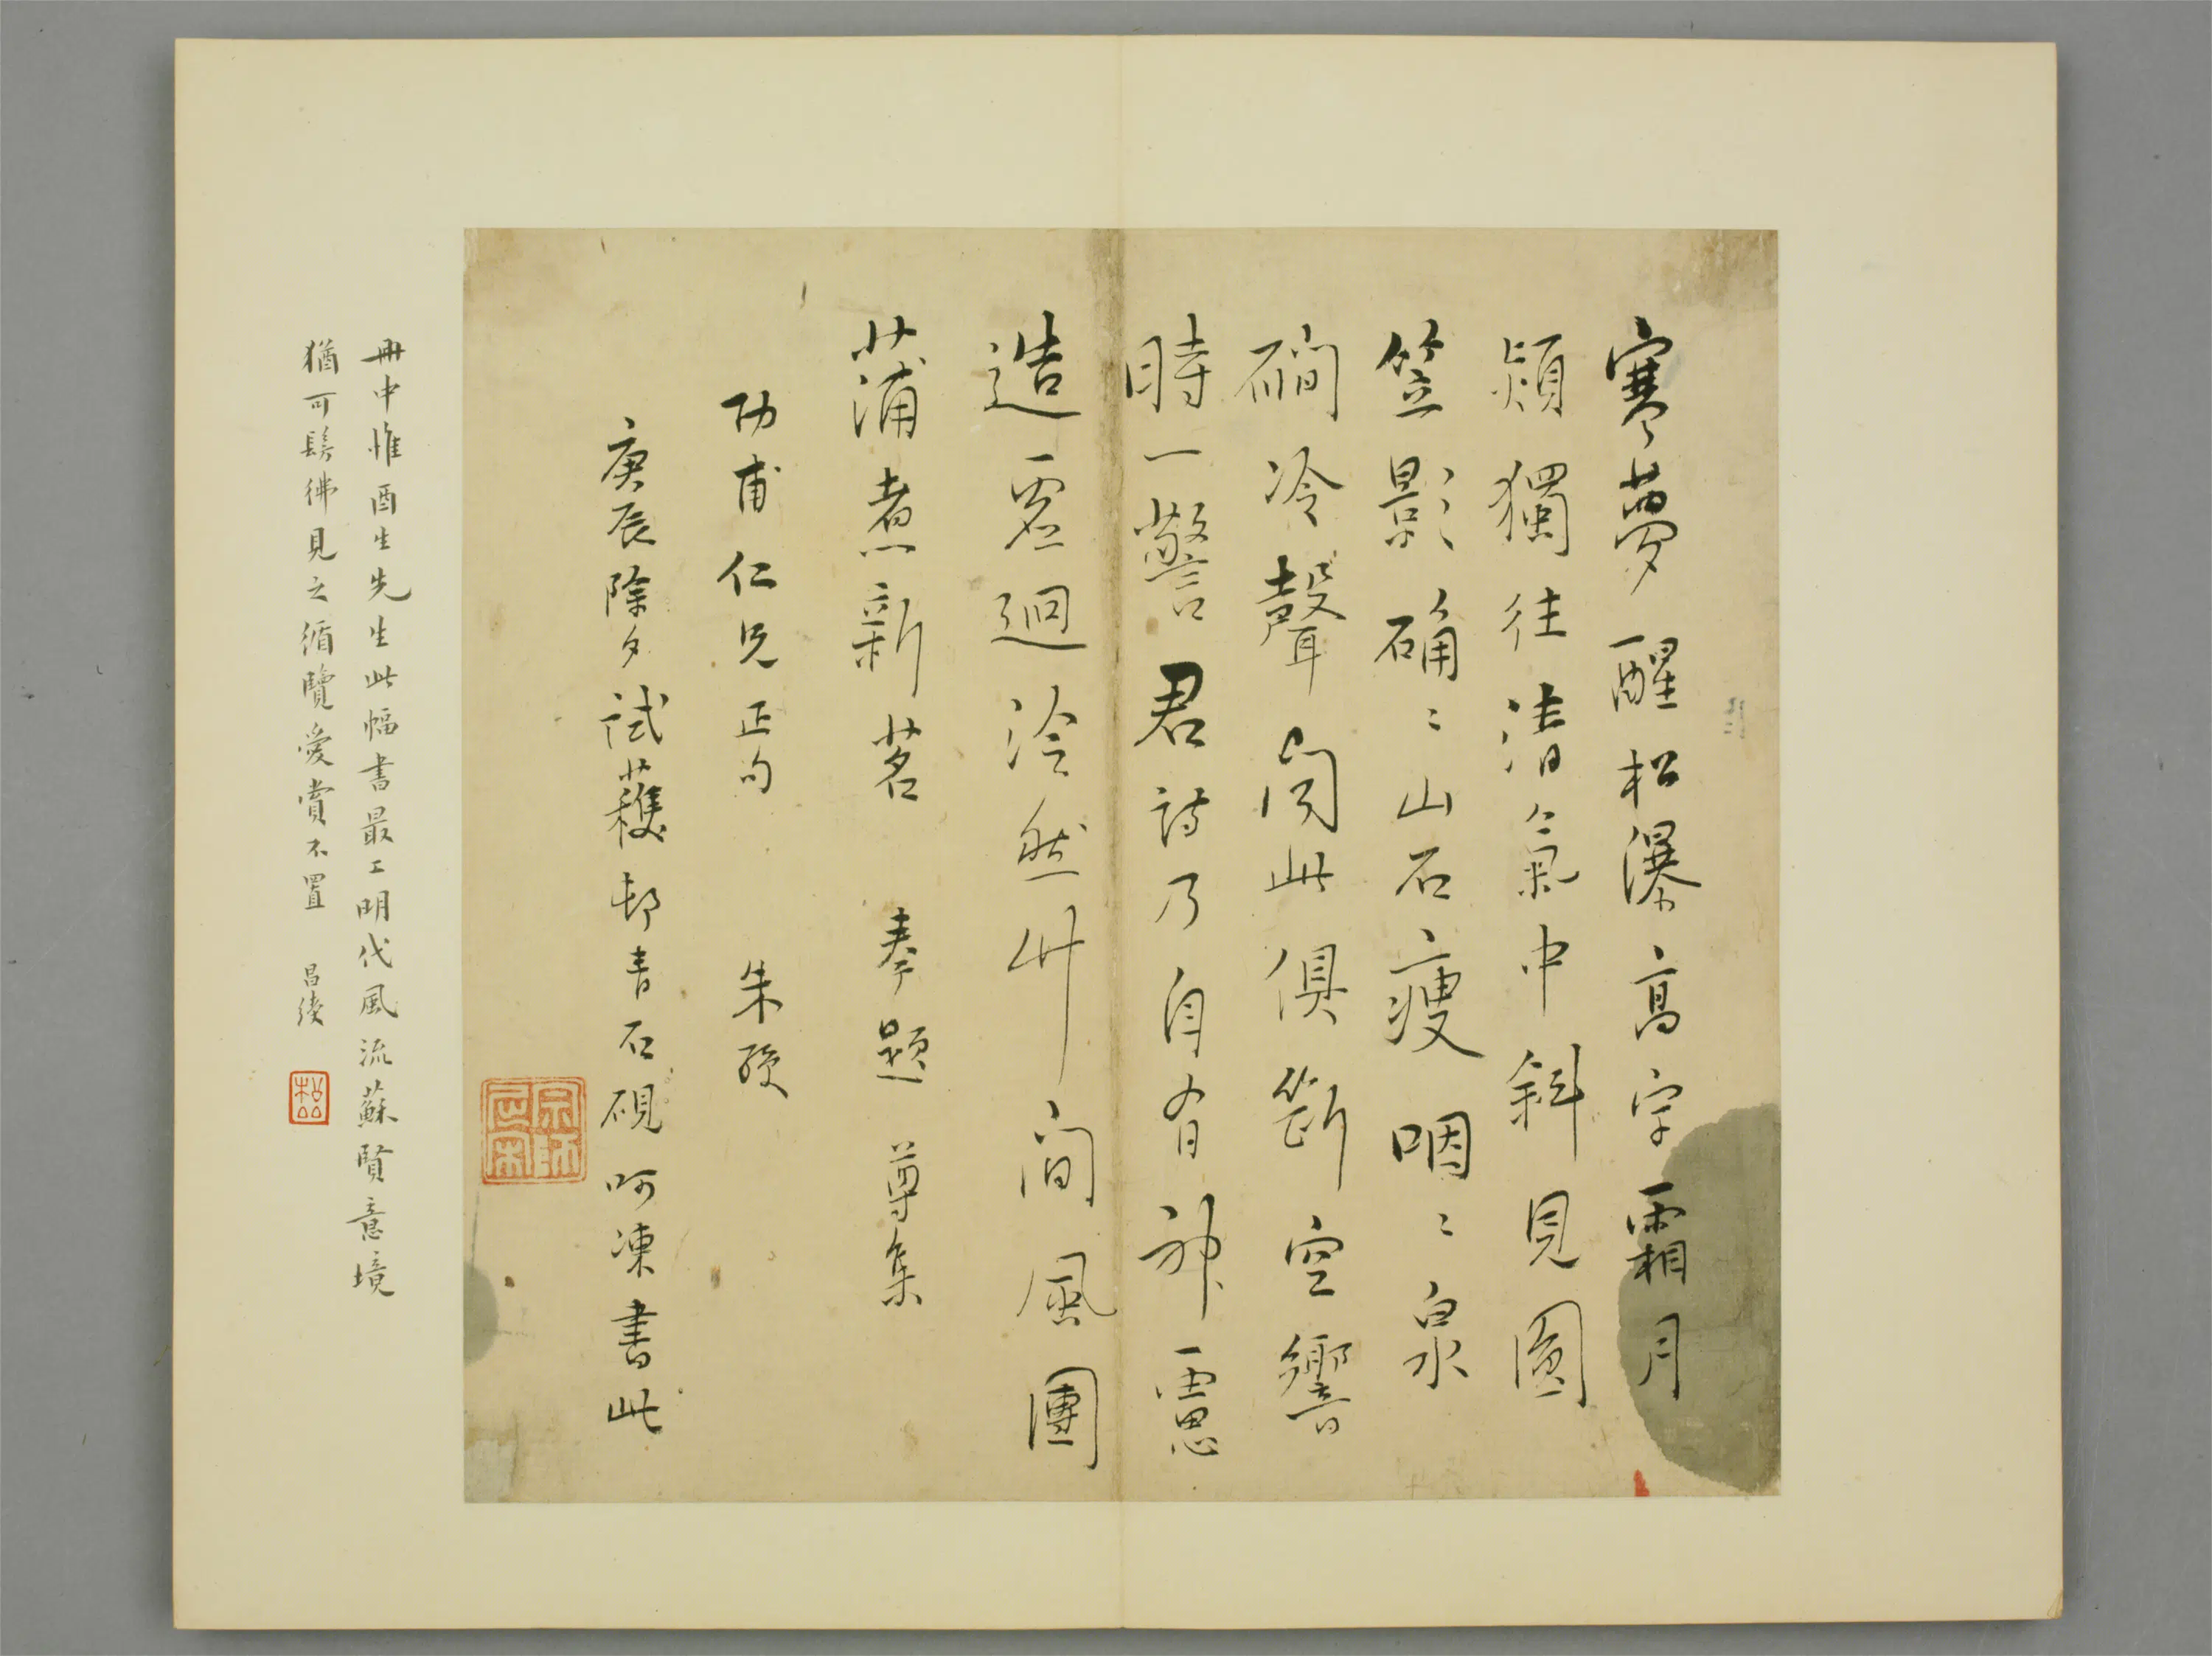 寒夢醒松瀑高字霜月
潁獨往清氣中斜見圓
笠影确〻山石瘦咽〻泉
磵冷聲聞此俱斷空響
時一警君詩乃自有神靈
造虛迴泠然竹間風團
蒲煮新茗 奉題 尊集
功甫仁兄正句 朱綬
庚辰除夕試蘀邨青石硯呵凍書此
冊中惟酉生先生此幅書最工明代風流蘇賢意境
猶可髣彿見之循覽愛賞不置 昌綬